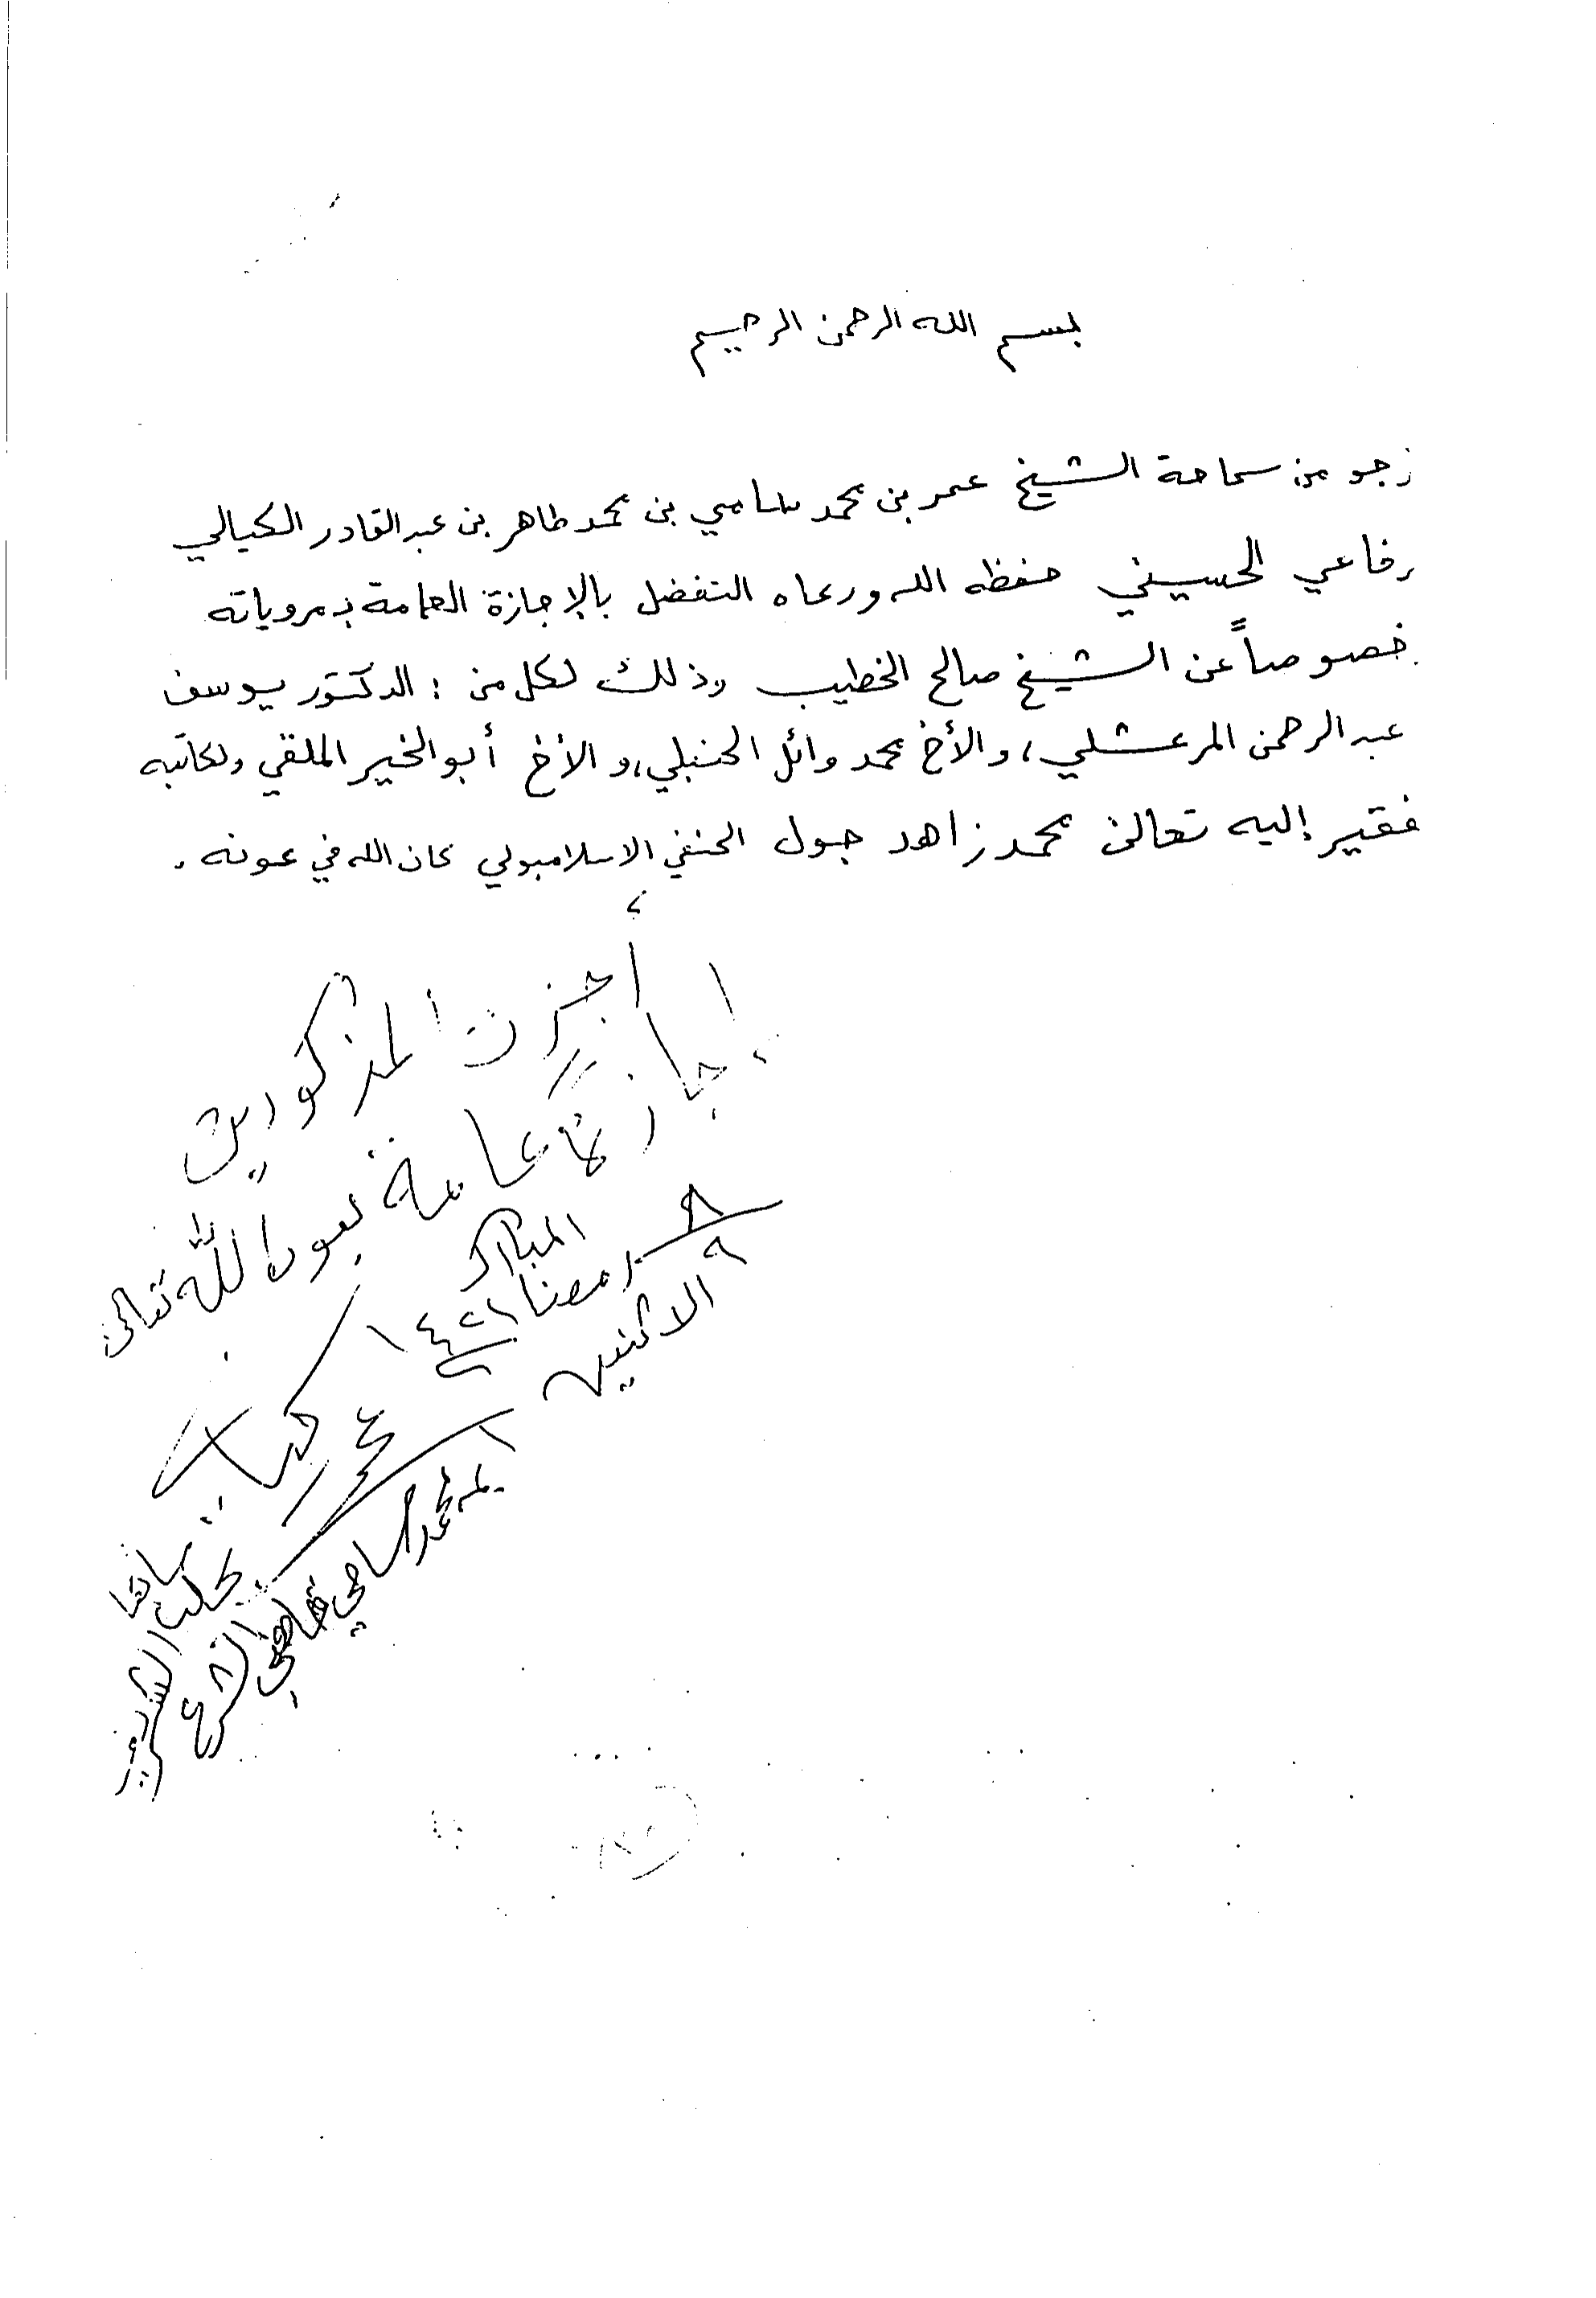 بسم الله الرحمن الرحيم
نرجو من سماحة الشيخ عمر بن محمد سامي بن محمد طاهر بن عبد القادر الكيالي
رفاعي الحسيني حفظه الله ورعاه التفضل بالإجازة العامة بمروياته
خصوصاً عن الشيخ صالح الخطيب وذلك لكل من : الدكتور يوسف
عبد الرحمن المرعشلي، والأخ محمد وائل الحنبلي، والأخ أبو الخير الملقي ولكاتبه
فقير إليه تعالى محمد زاهد جول الحنفي الاسلامبولي كان الله في عونه .
أجزت المذكورين
إجازة عامة بعون الله تعالى
٨ رمضان المبارك ١٤٢١
٩
الاثنين
عمر كيالي
بن محمد سامي قاضي الشرع
بحلب سابقا